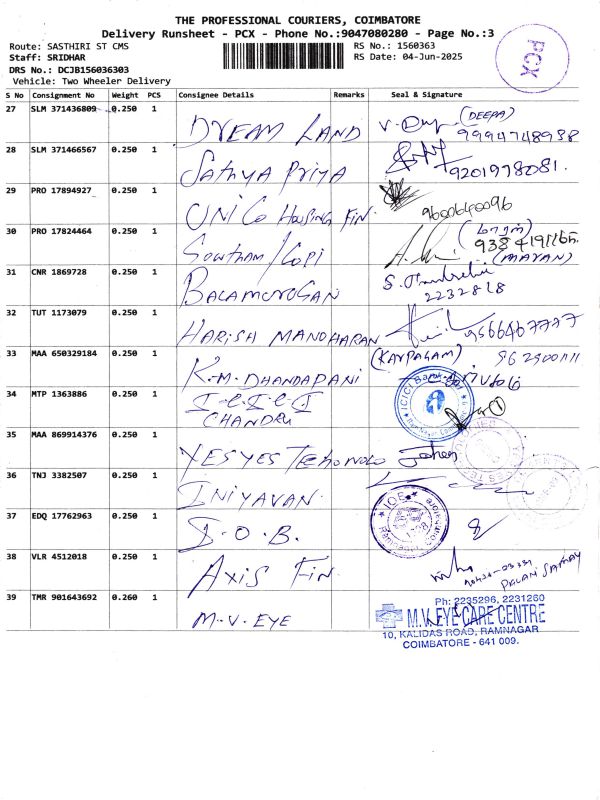 THE PROFESSIONAL COURIERS, COIMBATORE
Delivery Runsheet - PCX - Phone No.:9047080280 - Page No.:3
Route: SASTHIRI ST CMS RS No.: 1560363
Staff: SRIDHAR RS Date: 04-Jun-2025
DRS No.: DCJB156036303
Vehicle: Two Wheeler Delivery
PCX
S No Consignment No Weight PCS Consignee Details Remarks Seal & Signature
27 SLM 371436809 0.250 1 DREAM LAND (DEEPA)
9994748938
28 SLM 371466567 0.250 1 SATHYA PRIYA 9201998081.
29 PRO 17894927 0.250 1 UNICO HOUSING FIN. 9600640096
30 PRO 17824464 0.250 1 GOWTHAM/GOPI
(MARAN)
31 CNR 1869728 0.250 1 BALAMUROGAN
2232818
32 TUT 1173079 0.250 1 HARISH MANOHARAN 9566467777
33 MAA 650329184 0.250 1 K.M. DHANDAPANI (KARPAGAM)
34 MTP 1363886 0.250 1 I-C-I-C-I ICICI Bank
CHANDRU
35 MAA 869914376 0.250 1 YES YES
36 TNJ 3382507 0.250 1 INIYAVAN.
37 EDQ 17762963 0.250 1 I.O.B.
38 VLR 4512018 0.250 1 AXIS FIN. PALANI SAMAY
39 TMR 901643692 0.260 1 M.V. EYE
Ph: 2235296, 2231260
M.V. EYE CARE CENTRE
10, KALIDAS ROAD, RAMNAGAR
COIMBATORE - 641 009.